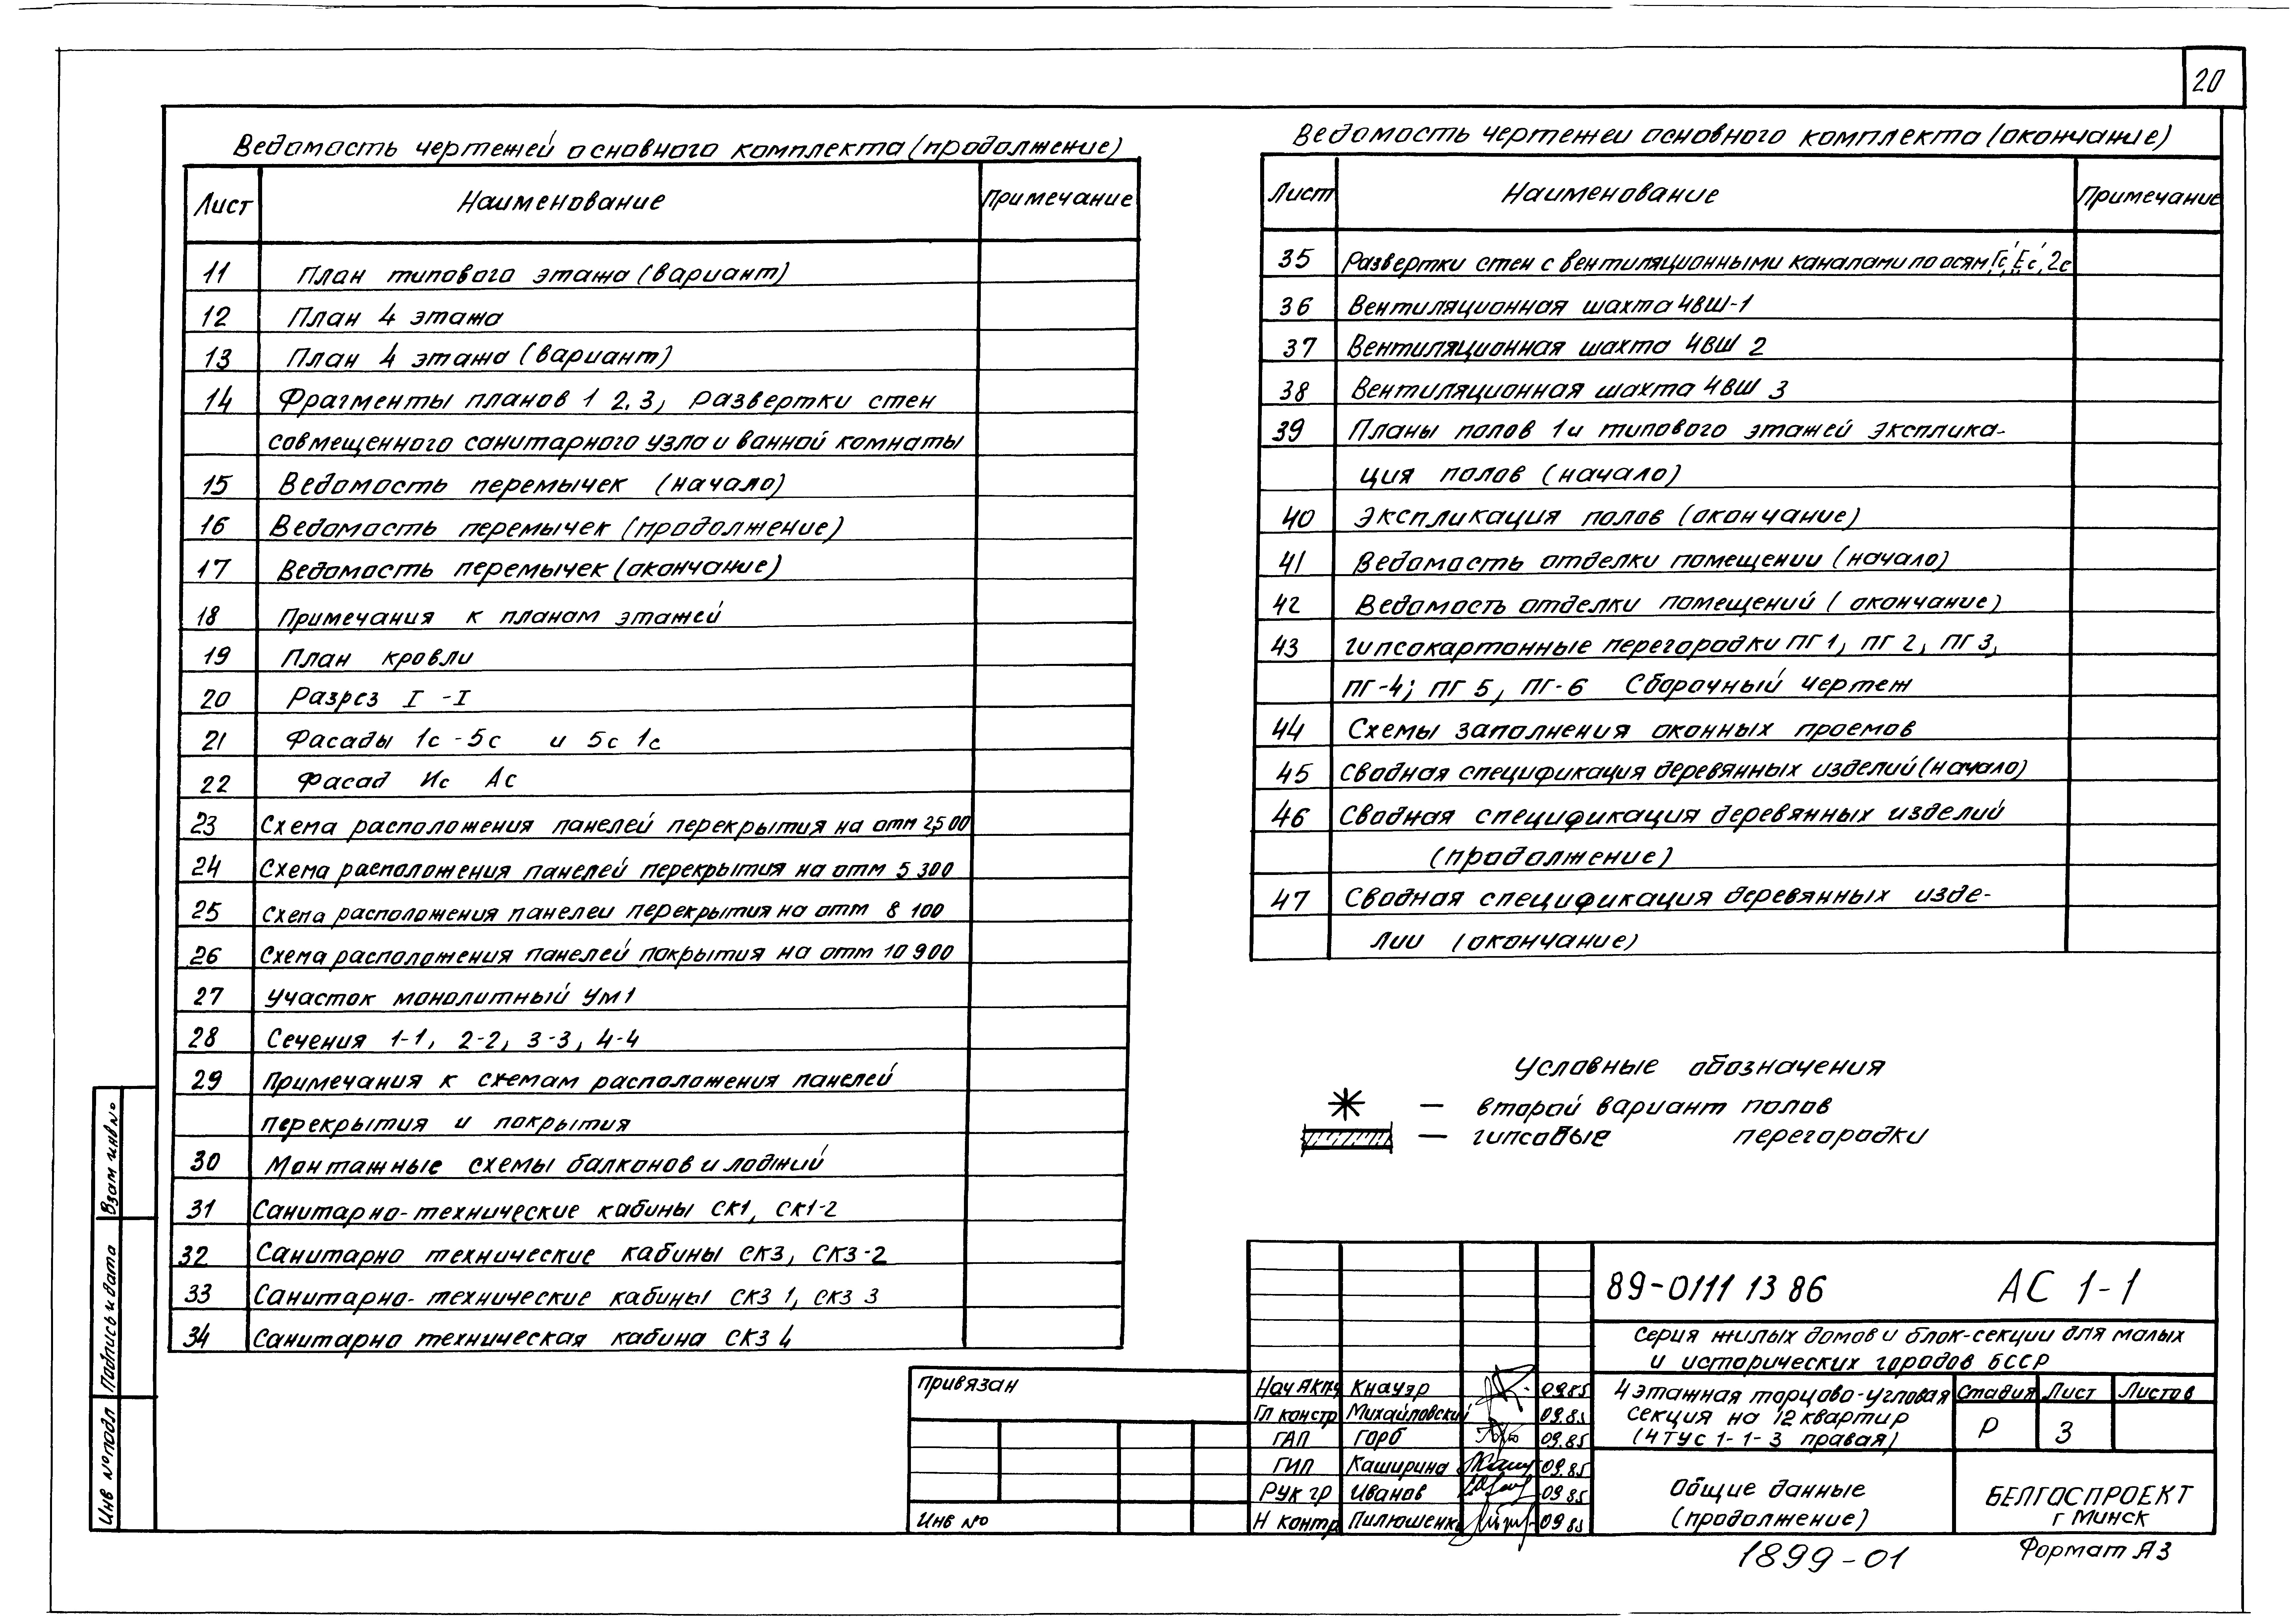 20
Ведомость чертежей основного комплекта (продолжение)
Лист Наименование Примечание
11 План типового этажа (вариант)
12 План 4 этажа
13 План 4 этажа (вариант)
14 Фрагменты планов 1 2, 3, развертки стен
совмещенного санитарного узла и ванной комнаты
15 Ведомость перемычек (начало)
16 Ведомость перемычек (продолжение)
17 Ведомость перемычек (окончание)
18 Примечания к планам этажей
19 План кровли
20 Разрез I - I
21 Фасады 1с - 5с и 5с 1с
22 Фасад Ис Ас
23 Схема расположения панелей перекрытия на отм 2,500
24 Схема расположения панелей перекрытия на отм 5 300
25 Схема расположения панелеи перекрытия на отм 8 100
26 Схема расположения панелей покрытия на отм 10 900
27 Участок монолитный Ум1
28 Сечения 1-1, 2-2, 3-3, 4-4
29 Примечания к схемам расположения панелей
перекрытия и покрытия
30 Монтажные схемы балконов и лоджий
31 Санитарно-технические кабины СК1, СК1-2
32 Санитарно технические кабины СК3, СК3-2
33 Санитарно-технические кабины СК3 1, СК3 3
34 Санитарно техническая кабина СК3 4
Ведомость чертежеи основного комплекта (окончание)
Лист Наименование Примечание
35 Развертки стен с вентиляционными каналами по осям Гс', Ес', 2с
36 Вентиляционная шахта 4ВШ-1
37 Вентиляционная шахта 4ВШ 2
38 Вентиляционная шахта 4ВШ 3
39 Планы полов 1 и типового этажей Эксплика-
ция полов (начало)
40 Экспликация полов (окончание)
41 Ведомость отделки помещении (начало)
42 Ведомость отделки помещений (окончание)
43 Гипсокартонные перегородки ПГ 1, ПГ 2, ПГ 3,
ПГ-4; ПГ 5, ПГ-6 Сборочный чертеж
44 Схемы заполнения оконных проемов
45 Сводная спецификация деревянных изделий (начало)
46 Сводная спецификация деревянных изделий
(продолжение)
47 Сводная спецификация деревянных изде-
лии (окончание)
Условные обозначения
— второй вариант полов
— гипсовые перегородки
Взам инв №
Подпись и дата
Инв № подл
Привязан
Инв №
Нач АКПч Кнауэр 09.85
Гл констр Михайловский 09.85
ГАП Горб 09.85
ГИП Каширина 09.85
Рук гр Иванов 09 85
Н контр Пилюшенко 09 85
89-0111 13 86 АС 1-1
Серия жилых домов и блок-секции для малых
и исторических городов БССР
4 этажная торцово-угловая
секция на 12 квартир
(4ТУС 1-1-3 правая)
Стадия Лист Листов
Р 3
Общие данные
(продолжение)
БЕЛГОСПРОЕКТ
г Минск
1899-01
Формат А3